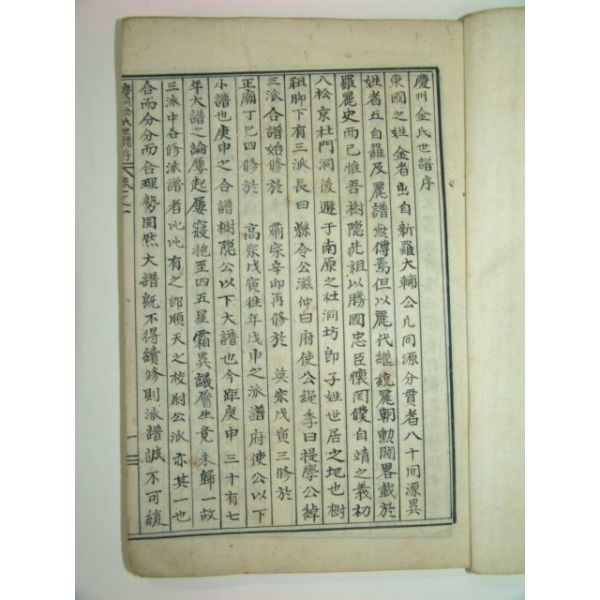 慶州金氏世譜序
東國之姓金者出自新羅大輔公凡同源分貫者八十同源異
姓者五自羅及麗譜無傳焉但以麗代繼統麗朝勳閥畧載於
羅麗史而已惟吾樹隱先祖以勝國忠臣懷罔僕自靖之義初
入松京杜門洞後遯于南原之杜洞坊卽子姓世居之地也樹
祖脚下有三派長曰縣令公滋仲曰府使公繩季曰提學公綽
三派合譜始修於 肅宗辛卯再修於 英宗戊寅三修於
正廟丁巳四修於 高宗戊寅徃年戊申之派譜府使公以下
小譜也庚申之合譜樹隱公以下大譜也今距庚申三十有七
年大譜之論屢起屢寢抱至四五星霜異議層生竟未歸一故
三派中各修派譜者比比有之部順天之校尉公派亦其一也
合而分分而合理勢固然大譜旣不得續修則派譜誠不可緩
慶州金氏世譜序 卷之一 一